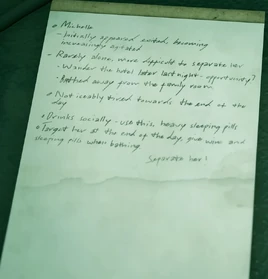 • Michelle
- Initially appeared excited, becoming
increasingly agitated
- Rarely alone, more difficult to separate her
- Wander the hotel later last night - opportunity?
- away from the family room
• Noticeably tired towards the end of the
day
• Drinks socially - use this, heavy sleeping pills
• Target her at the end of the day, give wine and
sleeping pills when bathing
Separate her!